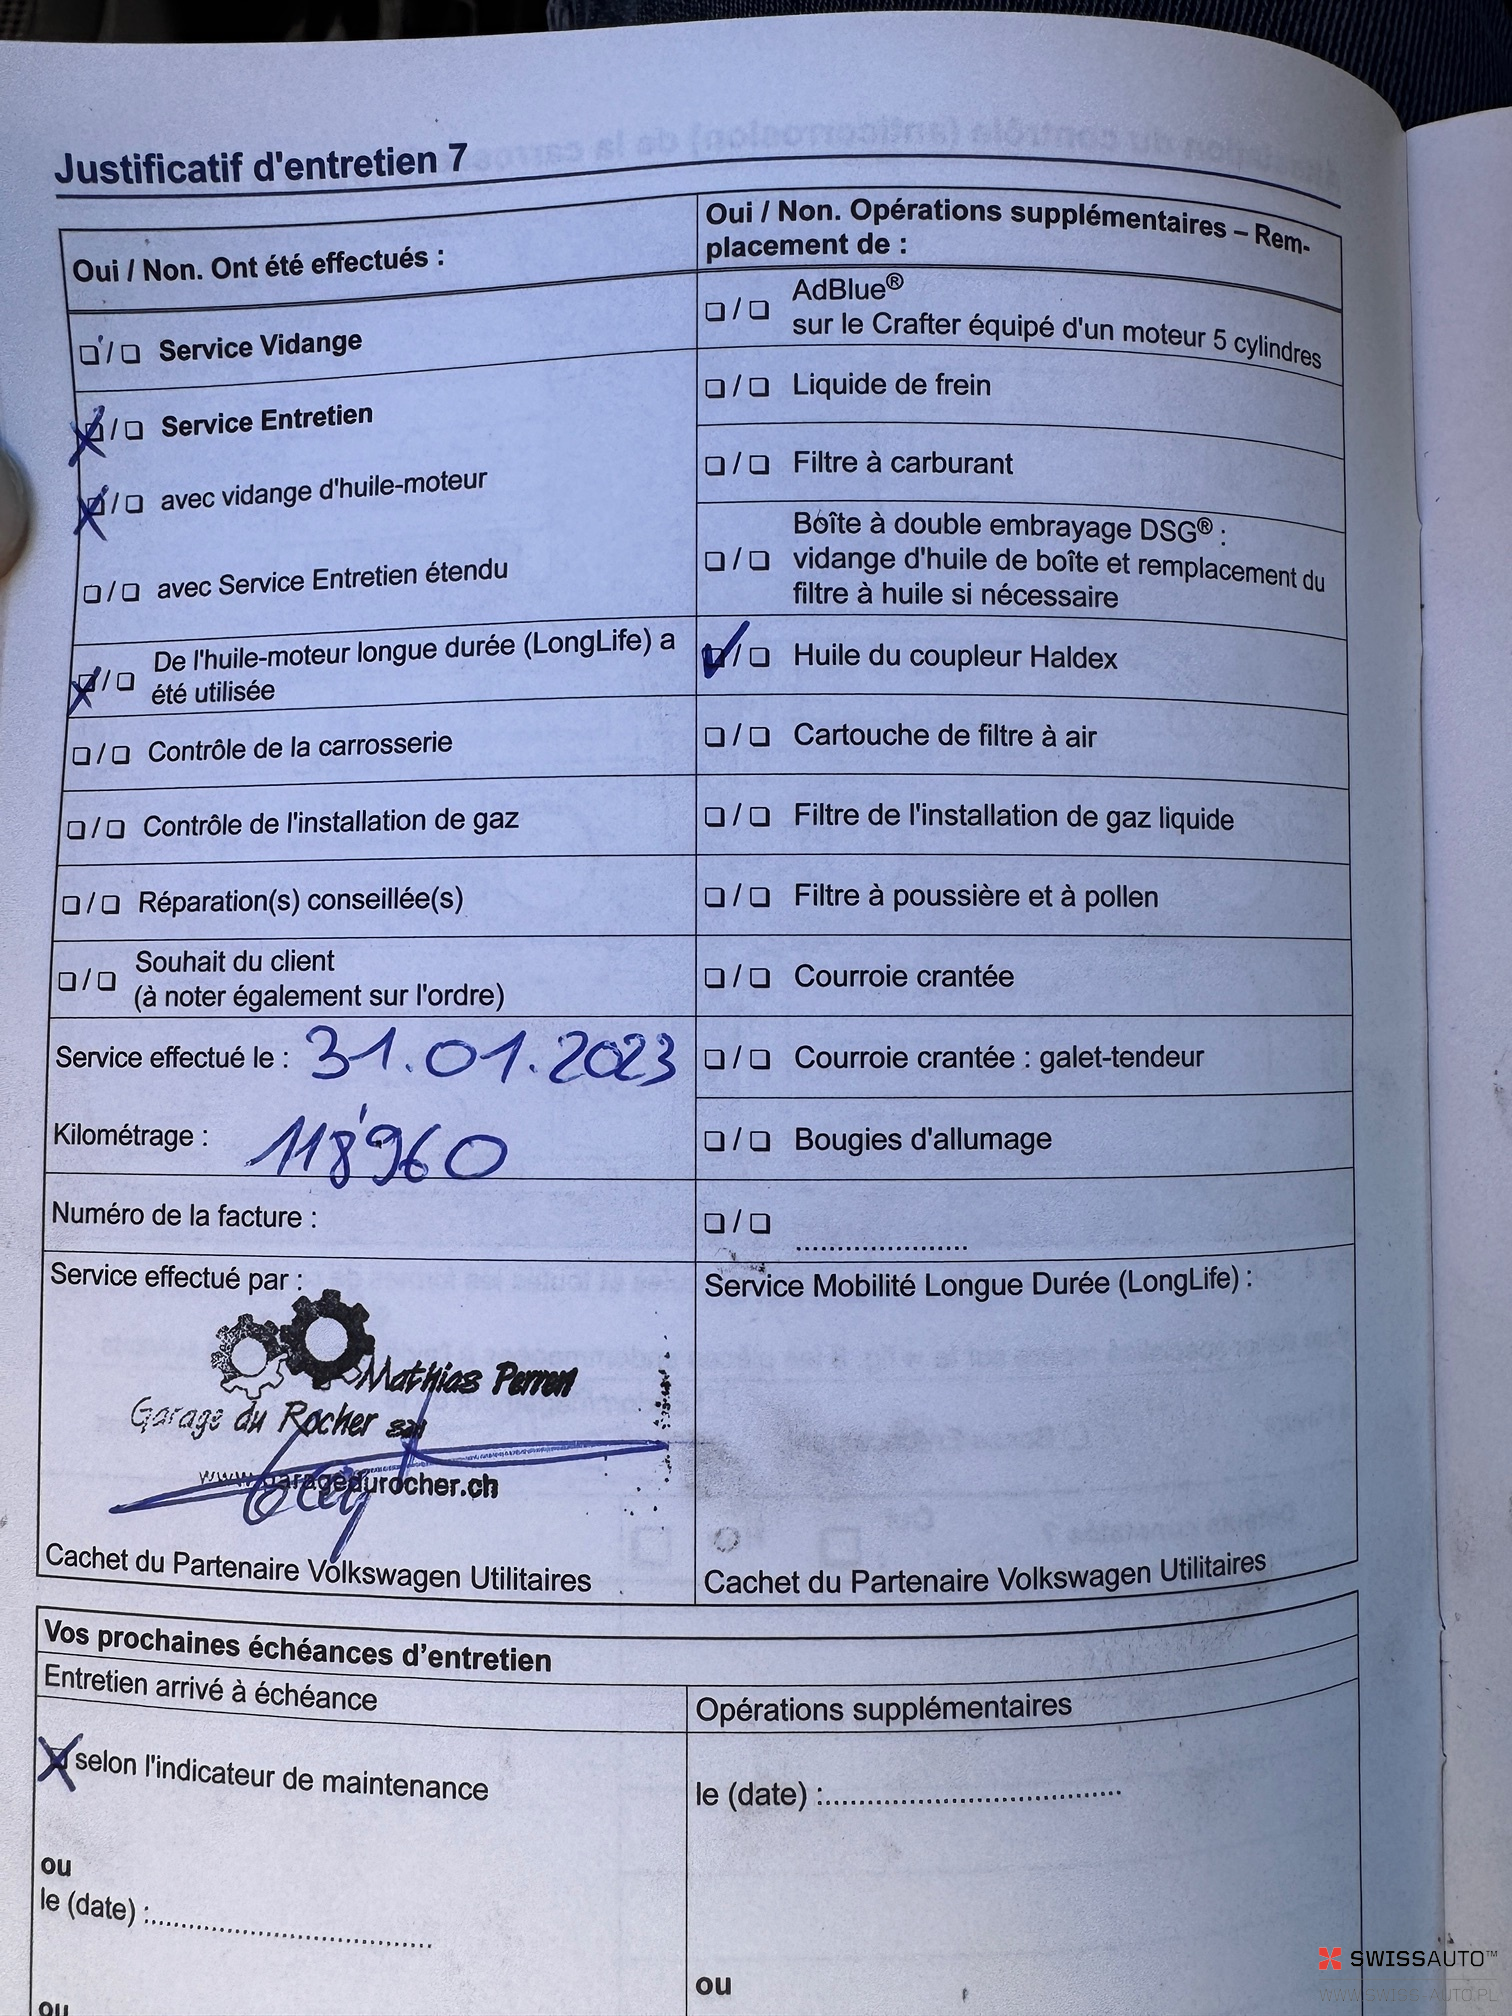 Justificatif d'entretien 7
Oui / Non. Ont été effectués :
❏ / ❏ Service Vidange
❏ / ❏ Service Entretien
❏ / ❏ avec vidange d'huile-moteur
❏ / ❏ avec Service Entretien étendu
❏ / ❏ De l'huile-moteur longue durée (LongLife) a
été utilisée
❏ / ❏ Contrôle de la carrosserie
❏ / ❏ Contrôle de l'installation de gaz
❏ / ❏ Réparation(s) conseillée(s)
❏ / ❏ Souhait du client
(à noter également sur l'ordre)
Service effectué le : 31.01.2023
Kilométrage : 118'960
Numéro de la facture :
Service effectué par :
Mathias Perren
Garage du Rocher sàrl
www.garagedurocher.ch
Cachet du Partenaire Volkswagen Utilitaires
Oui / Non. Opérations supplémentaires – Rem-
placement de :
❏ / ❏ AdBlue®
sur le Crafter équipé d'un moteur 5 cylindres
❏ / ❏ Liquide de frein
❏ / ❏ Filtre à carburant
❏ / ❏ Boîte à double embrayage DSG® :
vidange d'huile de boîte et remplacement du
filtre à huile si nécessaire
❏ / ❏ Huile du coupleur Haldex
❏ / ❏ Cartouche de filtre à air
❏ / ❏ Filtre de l'installation de gaz liquide
❏ / ❏ Filtre à poussière et à pollen
❏ / ❏ Courroie crantée
❏ / ❏ Courroie crantée : galet-tendeur
❏ / ❏ Bougies d'allumage
❏ / ❏ .....................
Service Mobilité Longue Durée (LongLife) :
Cachet du Partenaire Volkswagen Utilitaires
Vos prochaines échéances d'entretien
Entretien arrivé à échéance
selon l'indicateur de maintenance
ou
le (date) :...................................
ou
Opérations supplémentaires
le (date) :.....................................
ou
SWISSAUTO™
WWW.SWISS-AUTO.PL